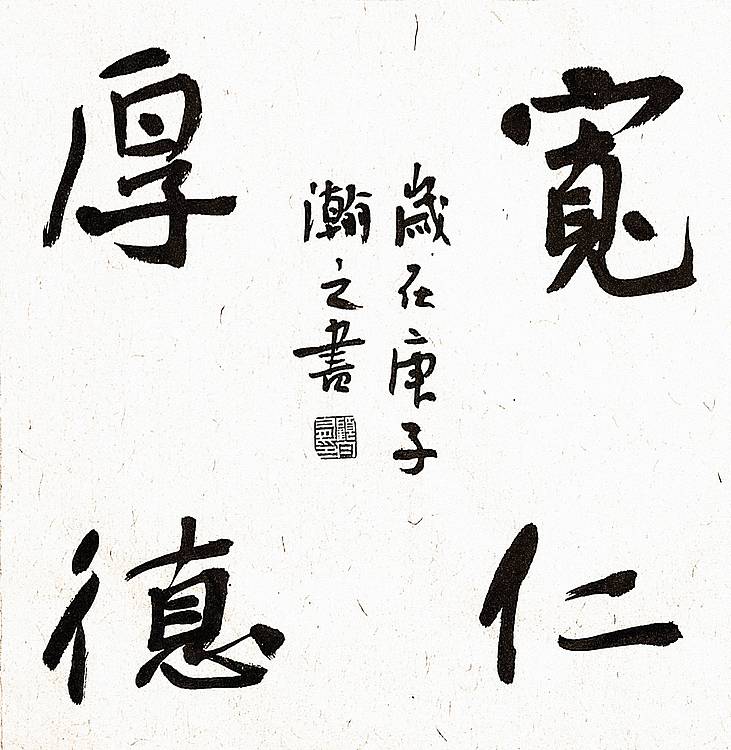 寬仁
厚德
歲在庚子
瀚之書